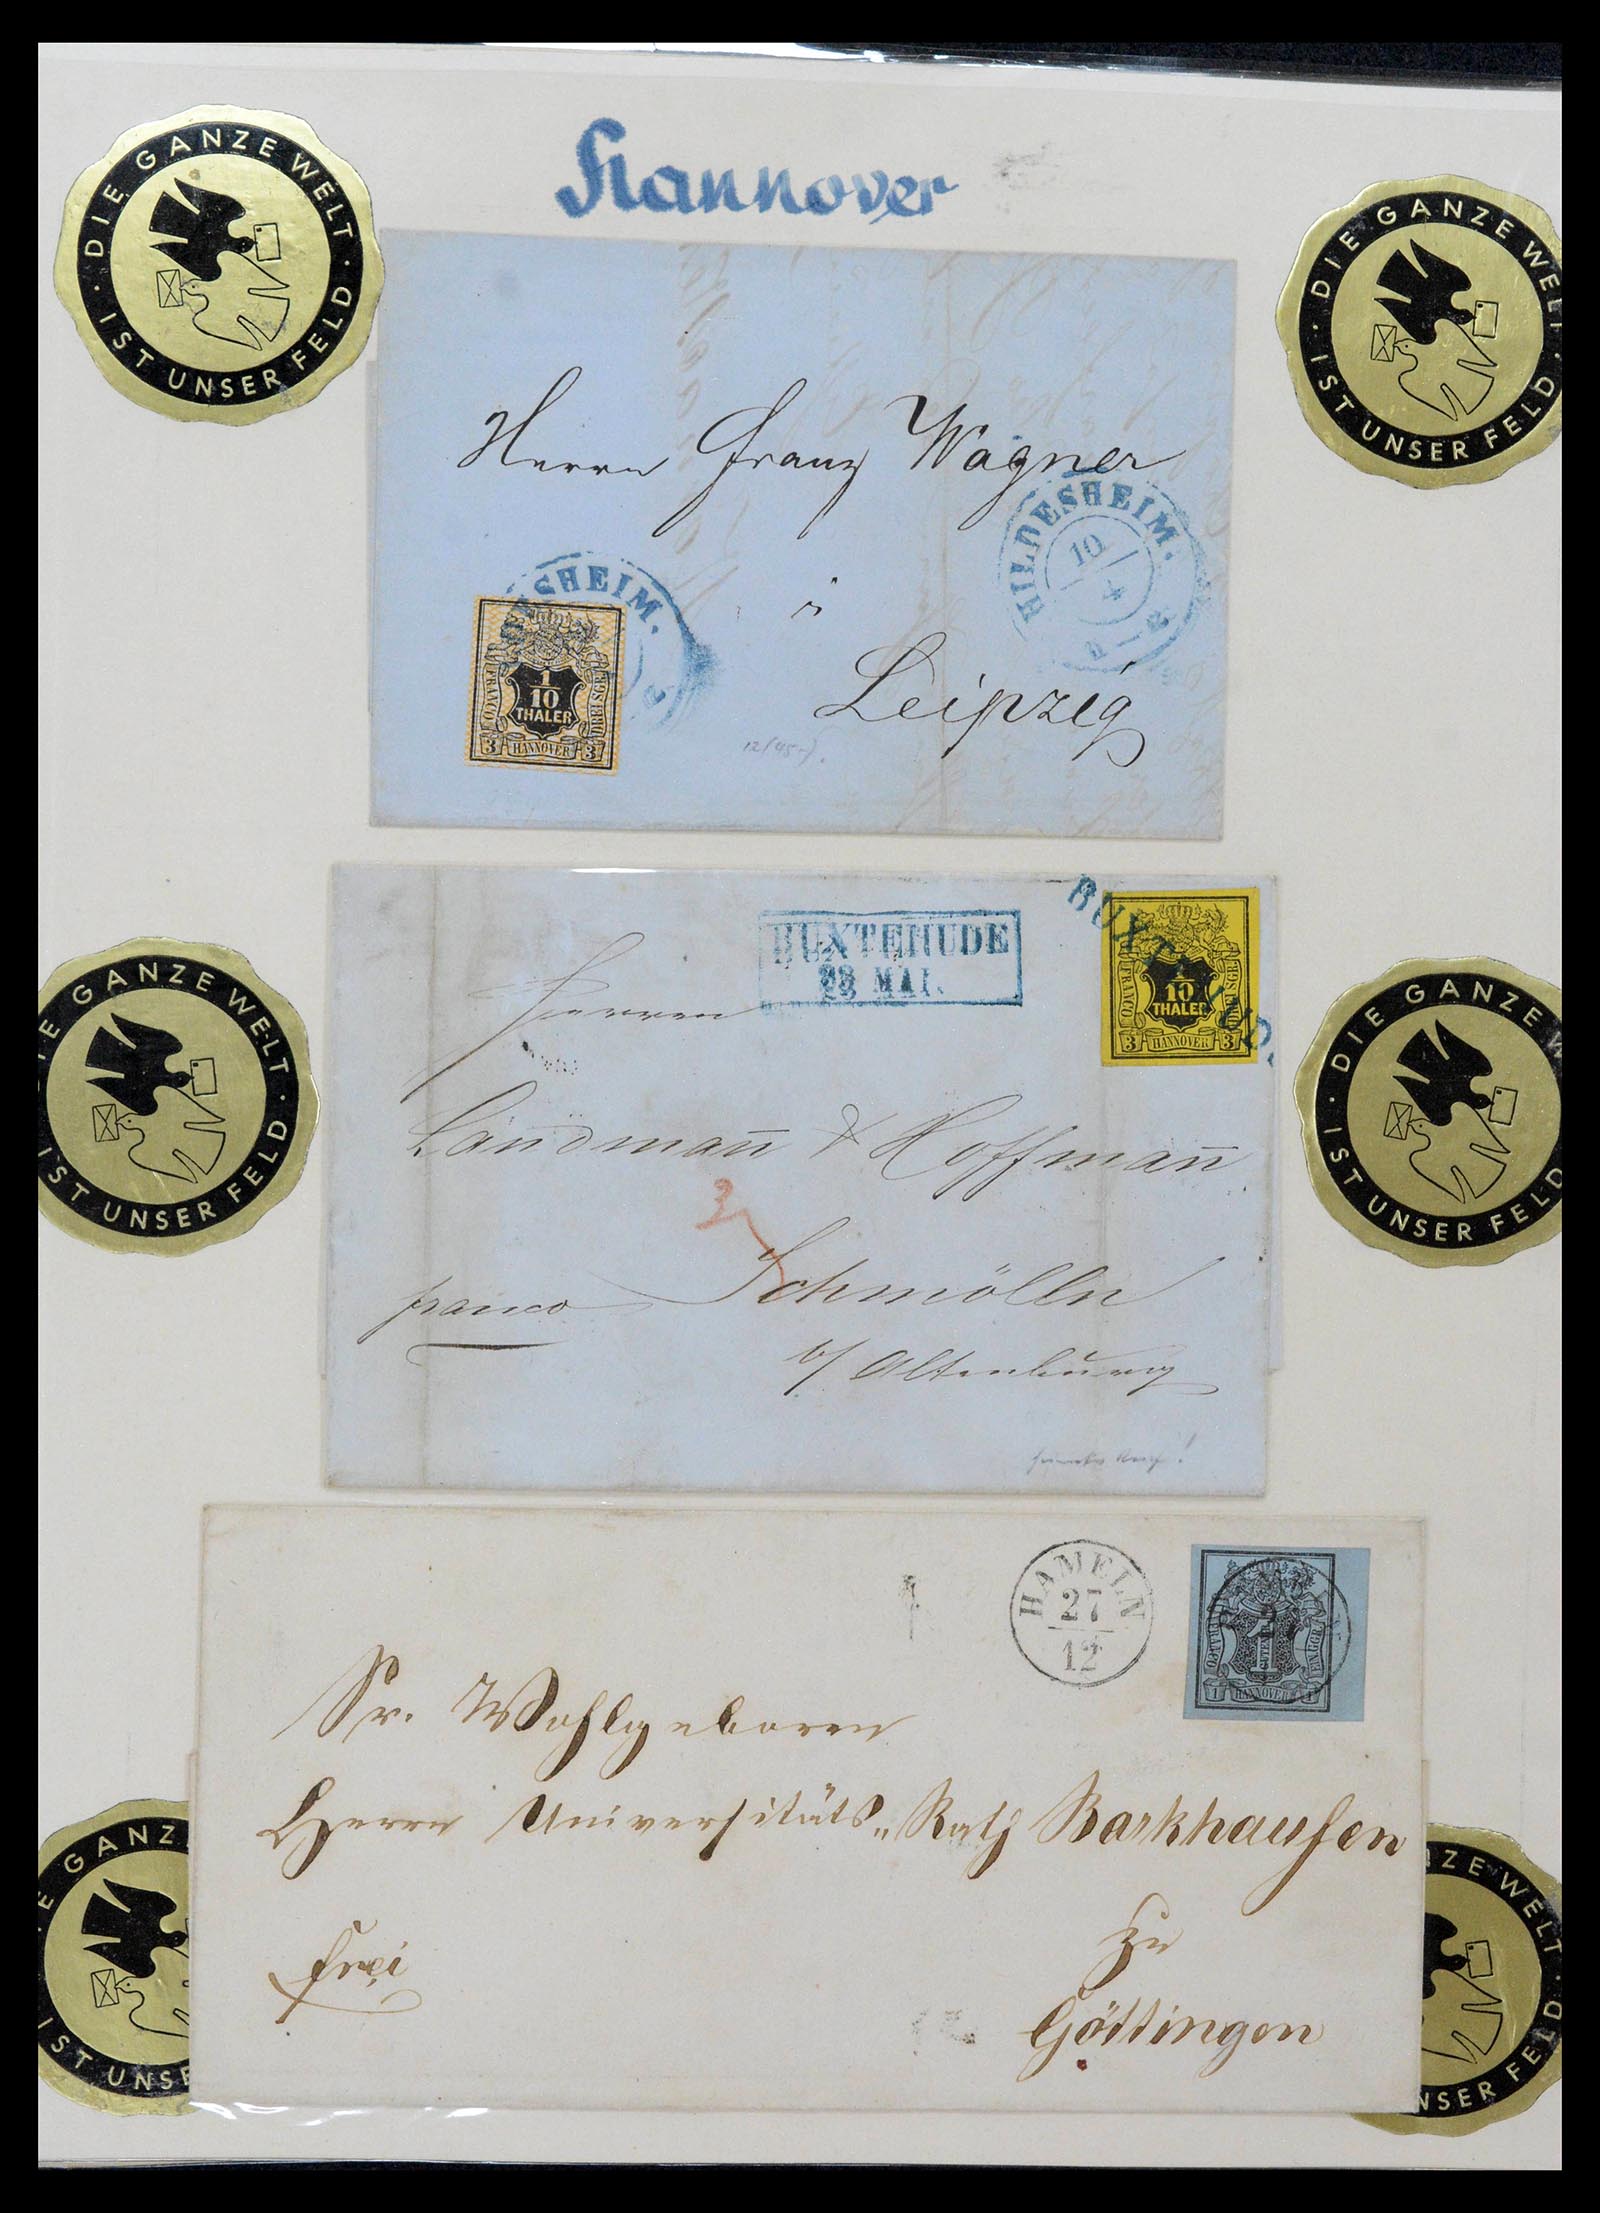 Hannover
DIE GANZE WELT · IST UNSER FELD ·
DIE GANZE WEL
· IST UNSER FELD ·
Herrn Franz Wagner
HILDESHEIM.
10
4
SHEIM.
i
1
10
THALER
FRANCO
DREI SGR
3 HANNOVER 3
Leipzig
12 (45-).
BUXTEHUDE
MAI.
BUXTEHUD
10
THALER
FRANCO
DREI SGR
3 HANNOVER 3
Herren
IE GANZE WELT ·
IST UNSER FELD ·
DIE GANZE W
· IST UNSER FELD
Landmann & Hoffmann
3
Schmölln
franco
b/ Altenburg
HAMELN
27
12
1
GUTENGR
FRANCO
EIN GGR
1 HANNOVER 1
Sr. Wohlgeboren
Herrn Universitäts-Rath Barkhausen
zu
frei
Göttingen
E GANZ
IST UNSE
NZE WELT ·
NSER FELD